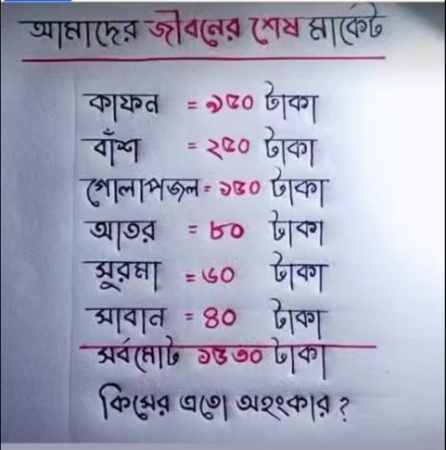 আমাদের জীবনের শেষ মার্কেট
কাফন = ৯৫০ টাকা
বাঁশ = ২৫০ টাকা
গোলাপজল = ১৫০ টাকা
আতর = ৮০ টাকা
সুরমা = ৬০ টাকা
সাবান = ৪০ টাকা
সর্বমোট ১৫৩০ টাকা
কিসের এতো অহংকার?